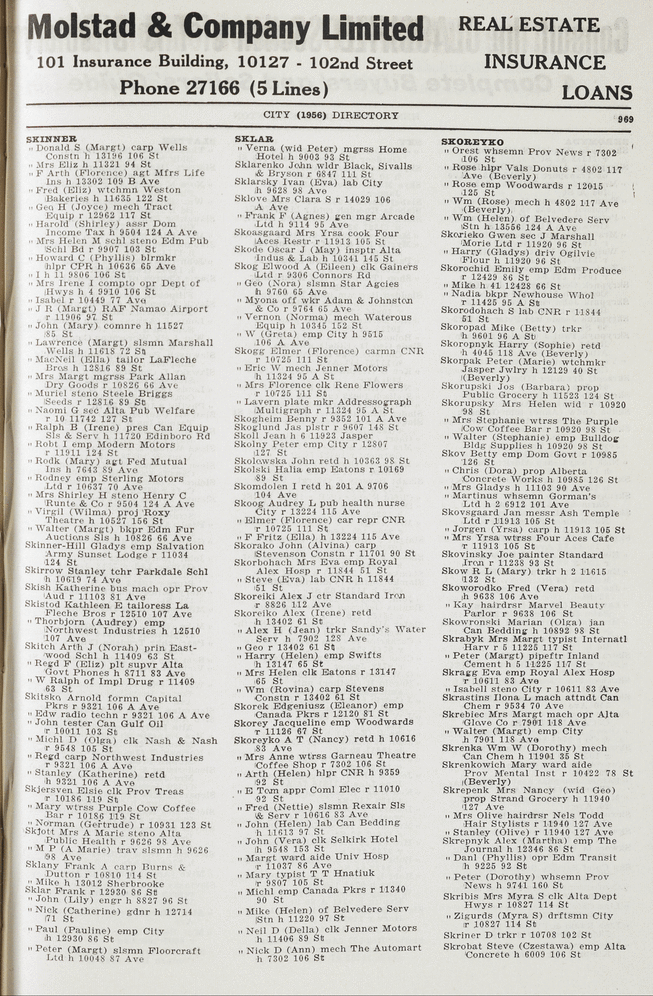 Molstad & Company Limited
101 Insurance Building, 10127 - 102nd Street
Phone 27166 (5 Lines)
REAL ESTATE
INSURANCE
LOANS
CITY (1956) DIRECTORY
969
SKINNER
" Donald S (Margt) carp Wells
Constn h 13196 106 St
" Mrs Eliz h 11321 94 St
" F Arth (Florence) agt Mfrs Life
Ins h 13302 109 B Ave
" Fred (Eliz) wtchmn Weston
Bakeries h 11635 122 St
" Geo H (Joyce) mech Tract
Equip r 12962 117 St
" Harold (Shirley) assr Dom
Income Tax h 9504 124 A Ave
" Mrs Helen M schl steno Edm Pub
Schl Bd r 9907 103 St
" Howard C (Phyllis) blrmkr
hlpr CPR h 10636 65 Ave
" I h 11 9806 106 St
" Mrs Irene I compto opr Dept of
Hwys h 4 9910 106 St
" Isabel r 10449 77 Ave
" J R (Margt) RAF Namao Airport
r 11906 97 St
" John (Mary) comnre h 11527
85 St
" Lawrence (Margt) slsmn Marshall
Wells h 11618 72 St
" MacNeil (Ella) tailor LaFleche
Bros h 12816 89 St
" Mrs Margt mgrss Park Allan
Dry Goods r 10826 66 Ave
" Muriel steno Steele Briggs
Seeds r 12816 89 St
" Naomi G sec Alta Pub Welfare
r 10 11742 127 St
" Ralph B (Irene) pres Can Equip
Sls & Serv h 11720 Edinboro Rd
" Robt I emp Modern Motors
r 11911 124 St
" Rodk (Mary) agt Fed Mutual
Ins h 7643 89 Ave
" Rodney emp Sterling Motors
Ltd r 10637 70 Ave
" Mrs Shirley H steno Henry C
Runte & Co r 9504 124 A Ave
" Virgil (Wilma) proj Roxy
Theatre h 10527 156 St
" Walter (Margt) bkpr Edm Fur
Auctions Sls h 10826 66 Ave
Skinner-Hill Gladys emp Salvation
Army Sunset Lodge r 11034
124 St
Skirrow Stanley tchr Parkdale Schl
h 10619 74 Ave
Skish Katherine bus mach opr Prov
Aud r 11103 81 Ave
Skistod Kathleen E tailoress La
Fleche Bros r 12510 107 Ave
" Thorbjorn (Audrey) emp
Northwest Industries h 12510
107 Ave
Skitch Arth J (Norah) prin East-
wood Schl h 11409 63 St
" Regd F (Eliz) plt supvr Alta
Govt Phones h 8711 83 Ave
" W Ralph of Impl Drug r 11409
63 St
Skitsko Arnold formn Capital
Pkrs r 9321 106 A Ave
" Edw radio techn r 9321 106 A Ave
" John tester Can Gulf Oil
r 10011 103 St
" Michl D (Olga) clk Nash & Nash
r 9548 105 St
" Regd carp Northwest Industries
r 9321 106 A Ave
" Stanley (Katherine) retd
h 9321 106 A Ave
Skjersven Elsie clk Prov Treas
r 10186 119 St
" Mary wtrss Purple Cow Coffee
Bar r 10186 119 St
" Norman (Gertrude) r 10931 123 St
Skjott Mrs A Marie steno Alta
Public Health r 9626 98 Ave
" M P (A Marie) trav slsmn h 9626
98 Ave
Sklany Frank A carp Burns &
Dutton r 10810 114 St
" Mike h 13012 Sherbrooke
Sklar Frank r 12930 86 St
" John (Lily) engr h 8827 96 St
" Nick (Catherine) gdnr h 12714
71 St
" Paul (Pauline) emp City
h 12930 86 St
" Peter (Margt) slsmn Floorcraft
Ltd h 10048 87 Ave
SKLAR
" Verna (wid Peter) mgrss Home
Hotel h 9003 93 St
Sklarenko John wldr Black, Sivalls
& Bryson r 6847 111 St
Sklarsky Ivan (Eva) lab City
h 9628 98 Ave
Sklove Mrs Clara S r 14029 106
A Ave
" Frank F (Agnes) gen mgr Arcade
Ltd h 9114 95 Ave
Skoasgaard Mrs Yrsa cook Four
Aces Restr r 11913 105 St
Skode Oscar J (May) insptr Alta
Indus & Lab h 10341 145 St
Skog Elwood A (Eileen) clk Gainers
Ltd r 9306 Connors Rd
" Geo (Nora) slsmn Star Agcies
h 9760 65 Ave
" Myona off wkr Adam & Johnston
& Co r 9764 65 Ave
" Vernon (Norma) mech Waterous
Equip h 10345 152 St
" W (Greta) emp City h 9515
106 A Ave
Skogg Elmer (Florence) carmn CNR
r 10725 111 St
" Eric W mech Jenner Motors
h 11324 95 A St
" Mrs Florence clk Rene Flowers
r 10725 111 St
" Lavern plate mkr Addressograph
Multigraph r 11324 95 A St
Skogheim Benny r 9352 101 A Ave
Skoglund Jas plstr r 9607 148 St
Skoll Jean h 6 11923 Jasper
Skolny Peter emp City r 12807
127 St
Skolowska John retd h 10363 98 St
Skolski Halia emp Eatons r 10169
89 St
Skomdolen I retd h 201 A 9706
104 Ave
Skoog Audrey L pub health nurse
City r 13224 115 Ave
" Elmer (Florence) car repr CNR
r 10725 111 St
" F Fritz (Ella) h 13224 115 Ave
Skorako John (Alvina) carp
Stevenson Constn r 11701 90 St
Skorbohach Mrs Eva emp Royal
Alex Hosp r 11844 51 St
" Steve (Eva) lab CNR h 11844
51 St
Skoreiki Alex J ctr Standard Iron
r 8826 112 Ave
Skoreiko Alex (Irene) retd
h 13402 61 St
" Alex H (Jean) trkr Sandy's Water
Serv h 7902 128 Ave
" Geo r 13402 61 St
" Harry (Helen) emp Swifts
h 13147 65 St
" Mrs Helen clk Eatons r 13147
65 St
" Wm (Rovina) carp Stevens
Constn r 13402 61 St
Skorek Edgenius (Eleanor) emp
Canada Pkrs r 12120 81 St
Skorey Jacqueline emp Woodwards
r 11126 67 St
Skoreyko A T (Nancy) retd h 10616
83 Ave
" Mrs Anne wtrss Garneau Theatre
Coffee Shop r 7302 106 St
" Arth (Helen) hlpr CNR h 9359
92 St
" E Tom appr Coml Elec r 11010
92 St
" Fred (Nettie) slsmn Rexair Sls
& Serv r 10616 83 Ave
" John (Helen) lab Can Bedding
h 11613 97 St
" John (Vera) clk Selkirk Hotel
h 9548 153 St
" Margt ward aide Univ Hosp
r 11037 86 Ave
" Mary typist T T Hnatiuk
r 9807 105 St
" Michl emp Canada Pkrs r 11340
90 St
" Mike (Helen) of Belvedere Serv
Stn h 11220 97 St
" Neil D (Della) clk Jenner Motors
h 11406 89 St
" Nick D (Ann) mech The Automart
h 7302 106 St
SKOREYKO
" Orest whsemn Prov News r 7302
106 St
" Rose hlpr Vals Donuts r 4802 117
Ave (Beverly)
" Rose emp Woodwards r 12015
125 St
" Wm (Rose) mech h 4802 117 Ave
(Beverly)
" Wm (Helen) of Belvedere Serv
Stn h 13556 124 A Ave
Skorieko Gwen sec J Marshall
Morie Ltd r 11920 96 St
" Harry (Gladys) driv Ogilvie
Flour h 11920 96 St
Skorochid Emily emp Edm Produce
r 12429 86 St
" Mike h 41 12428 66 St
" Nadia bkpr Newhouse Whol
r 11425 95 A St
Skorodohach S lab CNR r 11844
51 St
Skoropad Mike (Betty) trkr
h 9601 96 A St
Skoropnyk Harry (Sophie) retd
h 4045 118 Ave (Beverly)
Skorpak Peter (Marie) wtchmkr
Jasper Jwlry h 12129 40 St
(Beverly)
Skorupski Jos (Barbara) prop
Public Grocery h 11523 124 St
Skorupsky Mrs Helen wid r 10920
98 St
" Mrs Stephanie wtrss The Purple
Cow Coffee Bar r 10920 98 St
" Walter (Stephanie) emp Bulldog
Bldg Supplies h 10920 98 St
Skov Betty emp Dom Govt r 10985
126 St
" Chris (Dora) prop Alberta
Concrete Works h 10985 126 St
" Mrs Gladys h 11103 90 Ave
" Martinus whsemn Gorman's
Ltd h 2 6912 101 Ave
Skovsgaard Jan messr Ash Temple
Ltd r 11913 105 St
" Jorgen (Yrsa) carp h 11913 105 St
" Mrs Yrsa wtrss Four Aces Cafe
r 11913 105 St
Skovinsky Joe painter Standard
Iron r 11238 93 St
Skow R L (Mary) trkr h 2 11615
132 St
Skoworodko Fred (Vera) retd
h 9638 106 Ave
" Kay hairdsr Marvel Beauty
Parlor r 9638 106 Ave
Skowronski Marian (Olga) jan
Can Bedding h 10892 98 St
Skrabyk Mrs Margt typist Internatl
Harv r 5 11225 117 St
" Peter (Margt) pipeftr Inland
Cement h 5 11225 117 St
Skragg Eva emp Royal Alex Hosp
r 10611 83 Ave
" Isabell steno City r 10611 83 Ave
Skrastins Ilona L mach attndt Can
Chem r 9534 70 Ave
Skrebiec Mrs Margt mach opr Alta
Glove Co r 7901 118 Ave
" Walter (Margt) emp City
h 7901 118 Ave
Skrenka Wm W (Dorothy) mech
Can Chem h 11901 35 St
Skrenkowich Mary ward aide
Prov Mental Inst r 10422 78 St
(Beverly)
Skrepenk Mrs Nancy (wid Geo)
prop Strand Grocery h 11940
127 Ave
" Mrs Olive hairdrsr Nels Todd
Hair Stylists r 11940 127 Ave
" Stanley (Olive) r 11940 127 Ave
Skrepnyk Alex (Martha) emp The
Journal h 12346 86 St
" Danl (Phyllis) opr Edm Transit
h 9225 92 St
" Peter (Dorothy) whsemn Prov
News h 9741 160 St
Skribis Mrs Myra S clk Alta Dept
Hwys r 10827 114 St
" Zigurds (Myra S) drftsmn City
r 10827 114 St
Skriner D trkr r 10708 102 St
Skrobat Steve (Czestawa) emp Alta
Concrete h 6009 106 St